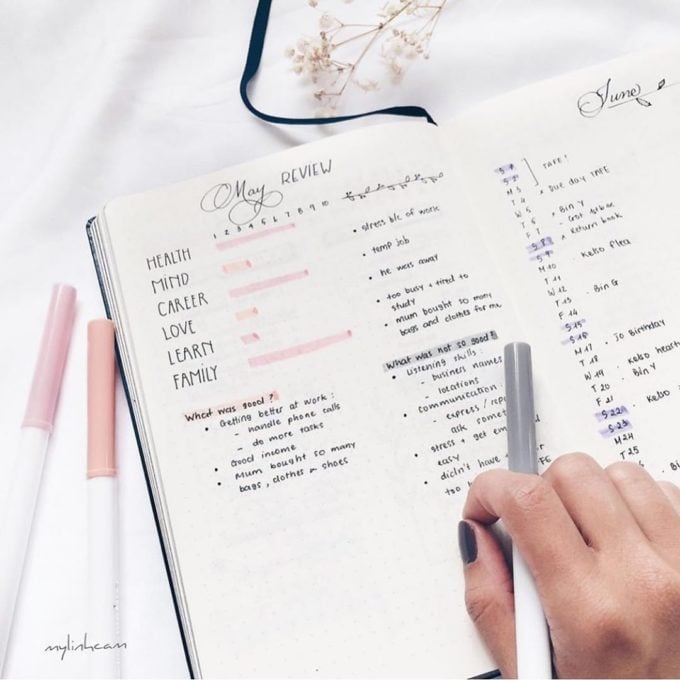 May REVIEW
1 2 3 4 5 6 7 8 9 10
HEALTH
MIND
CAREER
LOVE
LEARN
FAMILY
• stress b/c of work
• temp job
• he was away
• too busy + tired to
study
• mum bought so many
bags and clothes for me
What was good?
• Getting better at work:
- handle phone calls
- do more tasks
• Good income
• Mum bought so many
• bags, clothes shoes
What was not so good?
• Listening skills:
- business names
- locations
• communication:
- express /
ask
• stress + get
easy
• didn't have
too
June
S 1
S 2
TAFE!
M 3
T 4
• Due day TAFE
W 5
T 6
• Bin Y
F 7
• Return book
S 8
S 9
M 10
• Kelso
T 11
W 12
T 13
• Bin G
F 14
S 15
S 16
M 17
• Jo Birthday
T 18
W 19
• Kelso
T 20
• Bin Y
F 21
S 22
• Kelso
S 23
M 24
T 25
• Bin
mylinhcam